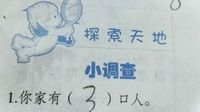 探索天地
小调查
1.你家有(3)口人。